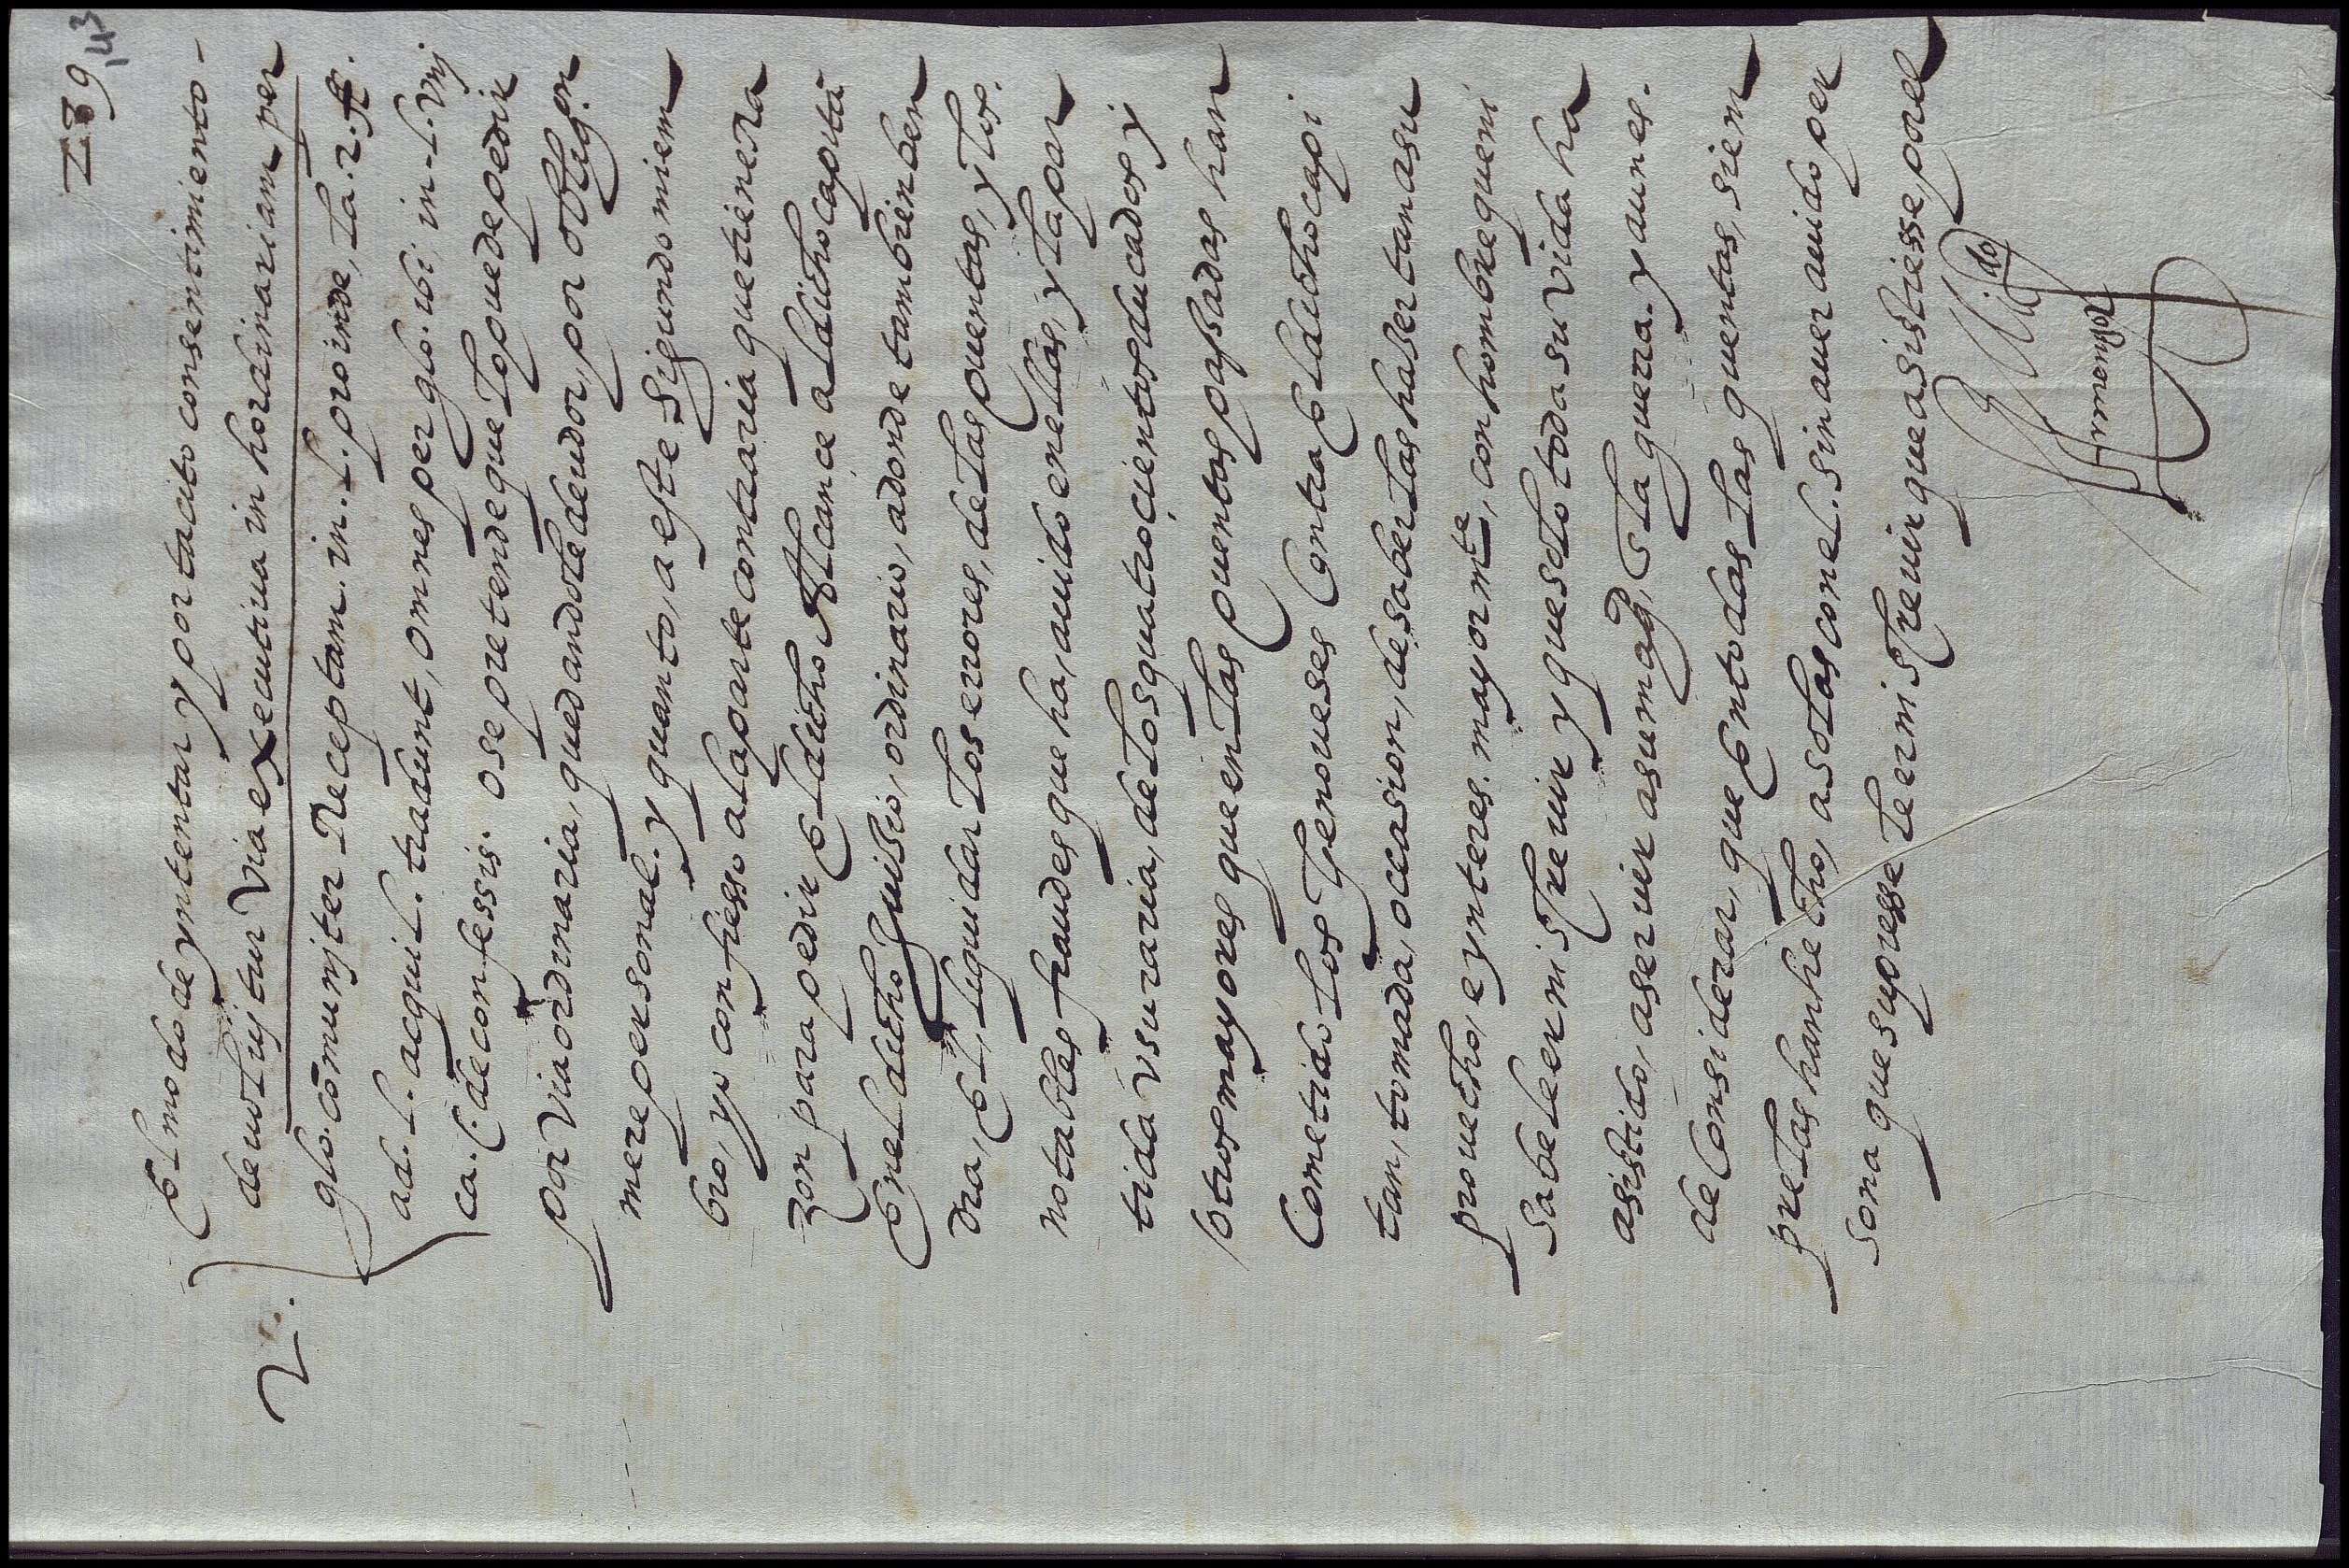 239
143
El modo de yntentar y por tacito consentimiento -
deuoluitur via executiua in hordinariam per
2. glo. cōmunjter Receptam. in. l. proinde, la. 2. ff.
ad. l. acquil. tradunt, omnes per glo. ibi, in. l. vnj
ca. C. de confessis. o se pretende que lo puede pedir
por via ordinaria, quedandole deudor, por oblig.on
mere personal. y quanto, a este sigundo miem
bro, yo confiesso a la parte contraria que tiene ra
zon para pedir el dicho Alcançe al dicho capita
En el dicho juisio, ordinario, adonde tambien ben
dra, El, liquidar los errores, de las quentas, y los.
notables fraudes que ha, auido en ellas, y la par
tida vsuraria, de los quatrocientos ducados y
otros mayores que en las quentas passadas han
Cometido los Genoueses Contra el dicho capi
tan, tomada, occasion, de saberlas haser tan a su
prouecho, e ynteres. mayormte, con hombre que ni
sabe leer ni screuir y que solo toda su vida ha
asistido, a seruir a su magd, En la guerra. y aun es.
de Considerar, que En todas las quentas, siem
pre las han hecho, a solas con el. sin auer auido per
sona que supiesse leer ni screuir que asistiesse por el